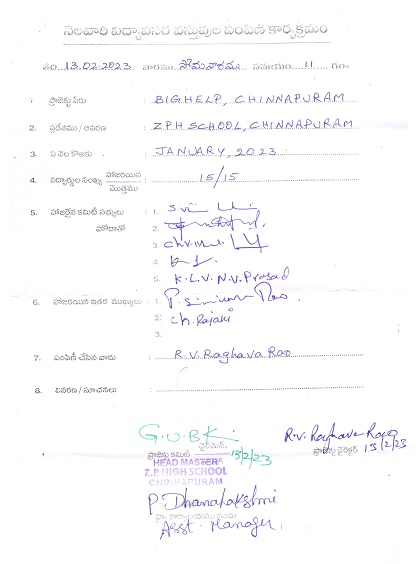 నెలవారీ విద్యావసర వస్తువుల పంపిణి కార్యక్రమం
తేది. 13.02.2023 వారము సోమవారము సమయం 11 గం.
1. ప్రాజెక్టు పేరు : BIGHELP, CHINNAPURAM
2. ప్రదేశము / ఆవరణ : ZPH SCHOOL, CHINNAPURAM
3. ఏ నెల కొఱకు : JANUARY, 2023
4. విద్యార్థుల సంఖ్య హాజరయిన / మొత్తము : 15/15
5. హాజరైన కమిటీ సభ్యులు : 1.
హోదాతో 2.
3.
4.
5. K.L.V.N.V. Prasad
6. హాజరయిన ఇతర ముఖ్యులు : 1. P. Srinivasa Rao
2. Ch. Rajani
3.
7. పంపిణీ చేసిన వారు : R.V. Raghava Rao
8. వివరణ / సూచనలు :
G.U.B.K R.V. Raghava Rao
ప్రాజెక్టు కమిటీ ఛైర్మెన్ 13/2/23 ప్రాజెక్టు డైరెక్టర్ 13/2/23
HEAD MASTER
Z.P. HIGH SCHOOL
CHINNAPURAM
P. Dhanalakshmi
Asst. Manager,